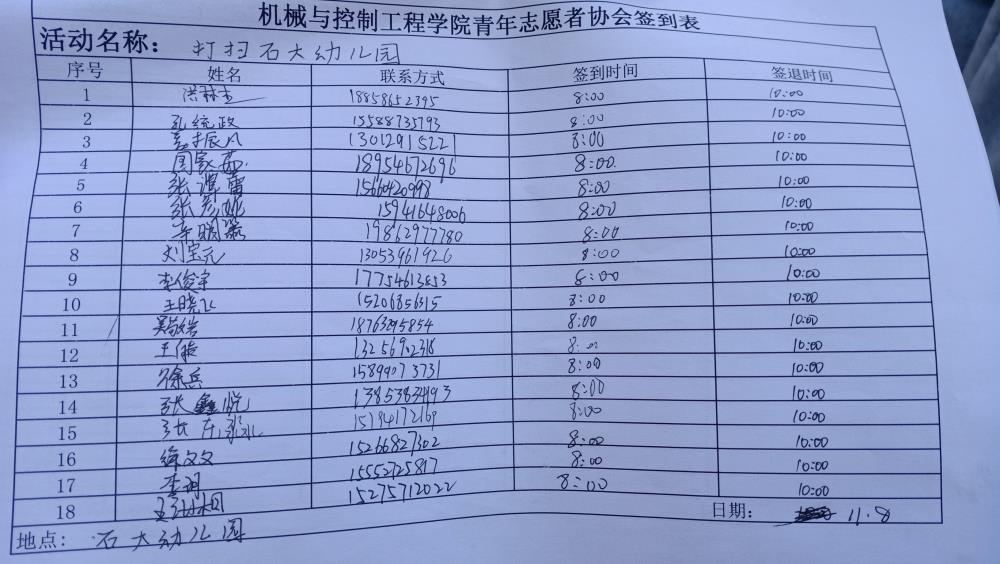 机械与控制工程学院青年志愿者协会签到表
活动名称： 打扫石大幼儿园
序号 姓名 联系方式 签到时间 签退时间
1 18858652395 8:00 10:00
2 孔统政 15588735793 8:00 10:00
3 13012915221 8:00 10:00
4 国家茹 18954672696 8:00 10:00
5 8:00 10:00
6 张彦姚 15941648006 8:00 10:00
7 19862977780 8:00 10:00
8 刘宝元 13053961926 8:00 10:00
9 李俊宇 17754613853 8:00 10:00
10 王晓飞 15206856315 8:00 10:00
11 8:00 10:00
12 王俊 8:00 10:00
13 徐兵 15899073731 8:00 10:00
14 张鑫悦 13853834493 8:00 10:00
15 15184172169 8:00 10:00
16 徐文文 15266827302 8:00 10:00
17 李珂 15552725817 8:00 10:00
18 15275712022 8:00 10:00
日期： 11.8
地点： 石大幼儿园